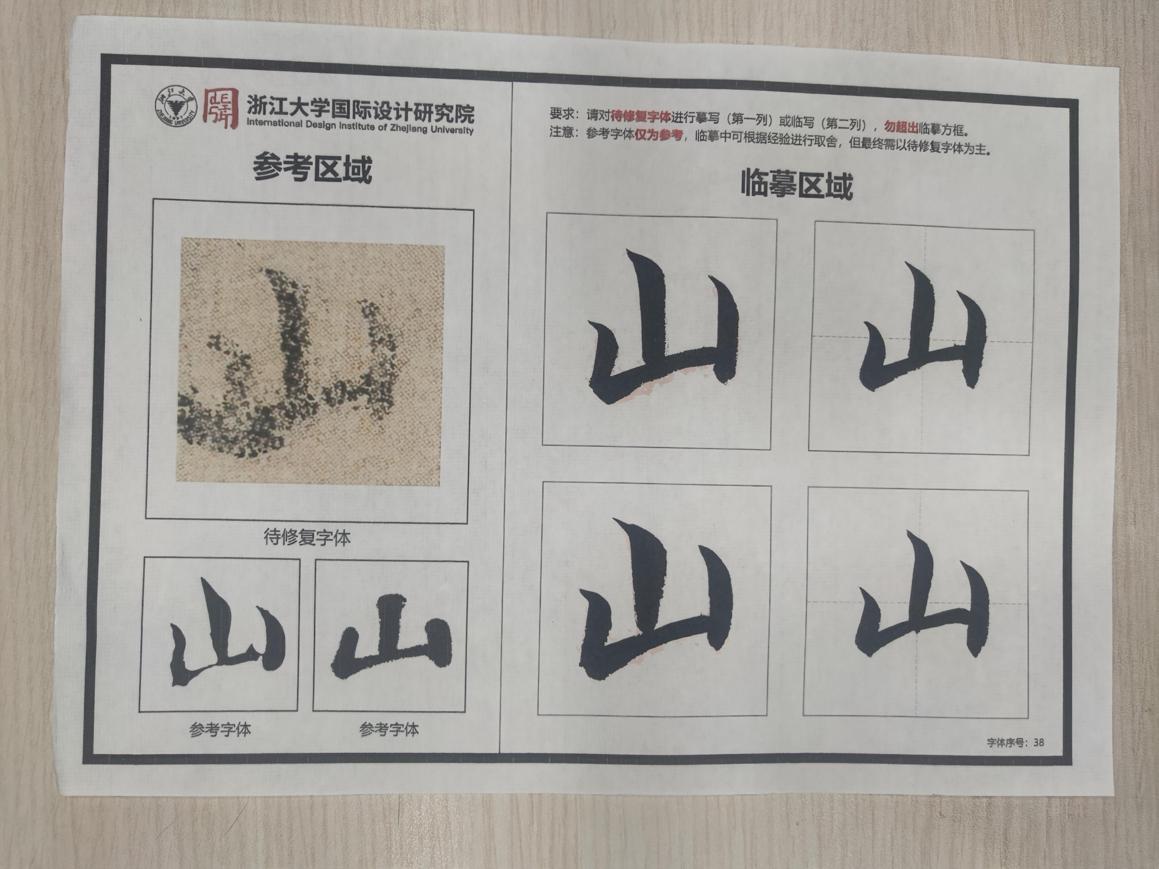 浙江大学国际设计研究院
International Design Institute of Zhejiang University
参考区域
山
待修复字体
山
山
参考字体
参考字体
要求：请对待修复字体进行摹写（第一列）或临写（第二列），勿超出临摹方框。
注意：参考字体仅为参考，临摹中可根据经验进行取舍，但最终需以待修复字体为主。
临摹区域
山
山
山
山
字体序号：38